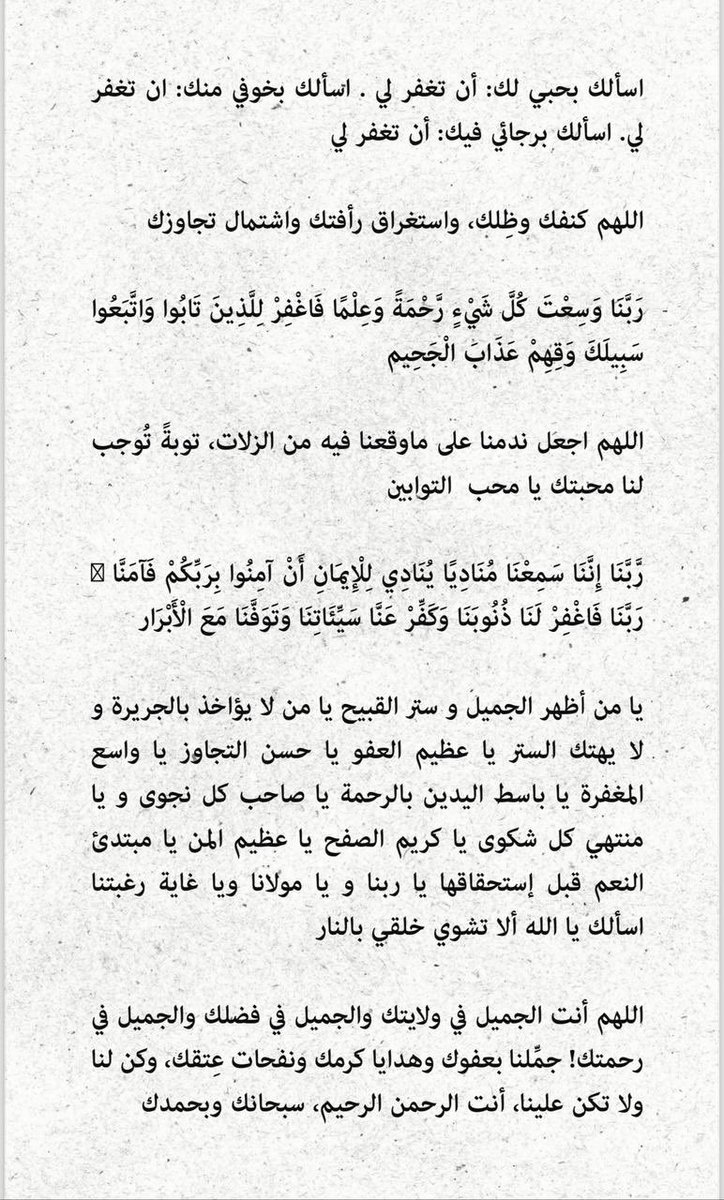 اسألك بحبي لك: أن تغفر لي . اسألك بخوفي منك: ان تغفر
لي. اسألك برجائي فيك: أن تغفر لي
اللهم كنفك وظِلك، واستغراق رأفتك واشتمال تجاوزك
رَبَّنَا وَسِعْتَ كُلَّ شَيْءٍ رَّحْمَةً وَعِلْمًا فَاغْفِرْ لِلَّذِينَ تَابُوا وَاتَّبَعُوا
سَبِيلَكَ وَقِهِمْ عَذَابَ الْجَحِيم
اللهم اجعل ندمنا على ماوقعنا فيه من الزلات، توبةً تُوجب
لنا محبتك يا محب التوابين
رَّبَّنَا إِنَّنَا سَمِعْنَا مُنَادِيًا يُنَادِي لِلْإِيمَانِ أَنْ آمِنُوا بِرَبِّكُمْ فَآمَنَّا
رَبَّنَا فَاغْفِرْ لَنَا ذُنُوبَنَا وَكَفِّرْ عَنَّا سَيِّئَاتِنَا وَتَوَفَّنَا مَعَ الْأَبْرَار
يا من أظهر الجميل و ستر القبيح يا من لا يؤاخذ بالجريرة و
لا يهتك الستر يا عظيم العفو يا حسن التجاوز يا واسع
المغفرة يا باسط اليدين بالرحمة يا صاحب كل نجوى و يا
منتهي كل شكوى يا كريم الصفح يا عظيم المن يا مبتدئ
النعم قبل إستحقاقها يا ربنا و يا مولانا ويا غاية رغبتنا
اسألك يا الله ألا تشوي خلقي بالنار
اللهم أنت الجميل في ولايتك والجميل في فضلك والجميل في
رحمتك! جمِّلنا بعفوك وهدايا كرمك ونفحات عِتقك، وكن لنا
ولا تكن علينا، أنت الرحمن الرحيم، سبحانك وبحمدك